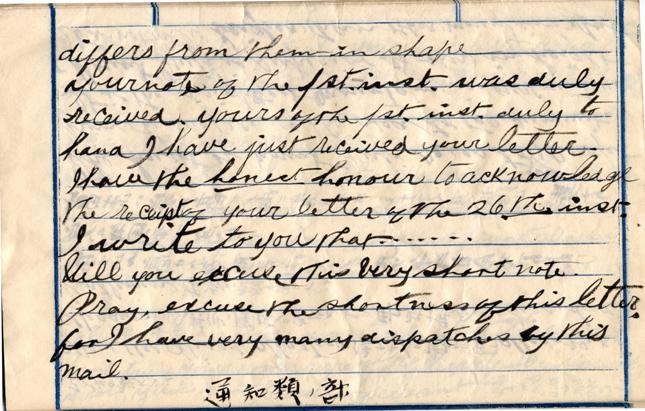 differs from them in shape
Your note of the 1st. inst. was duly
received. yours of the 1st. inst. duly to
hand I have just received your letter.
I have the honest honour to acknowledge
the receipt of your letter of the 26th inst.
I write to you that.......
Will you excuse this very short note.
Pray, excuse the shortness of this letter,
for I have very many dispatches by this
mail.
通知類ノ